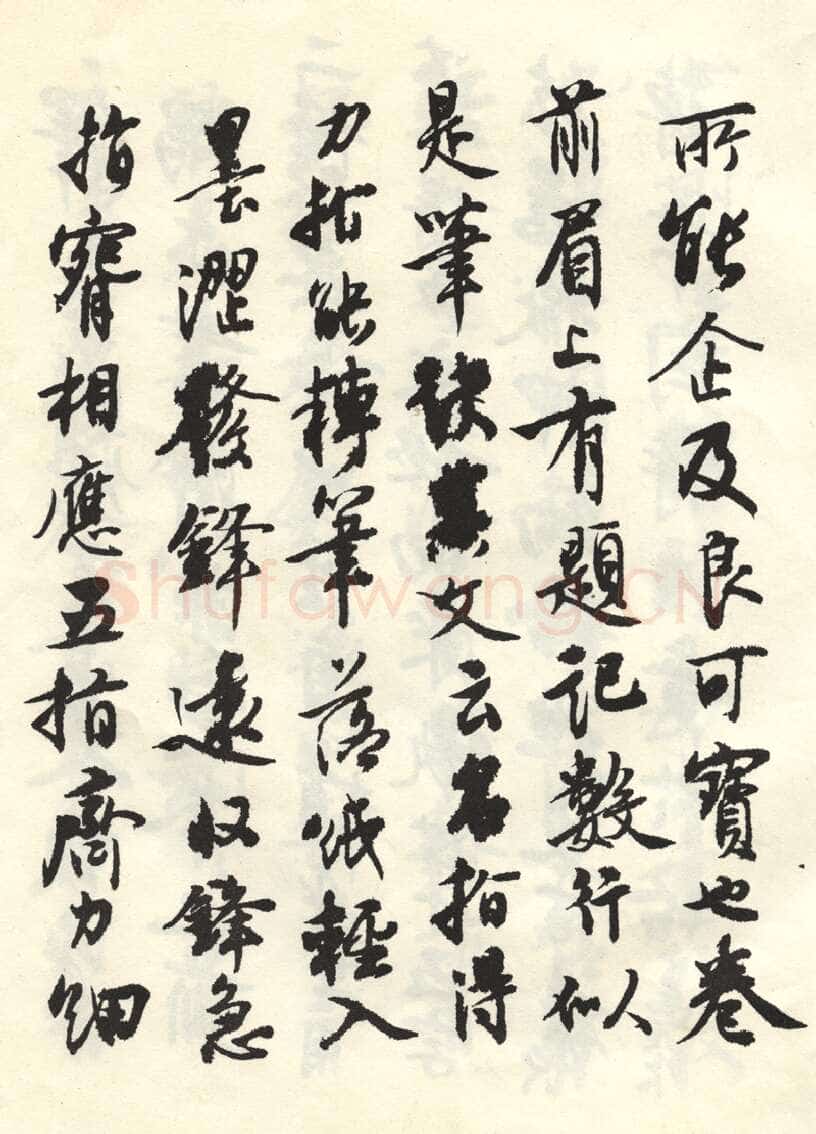 所能企及良可寶也卷
前眉上有題記數行似
是筆訣其文云名指得
力指能轉筆落紙輕入
墨澀發鋒遠收鋒急
指 相應五指齊力細
Shufawang.CN